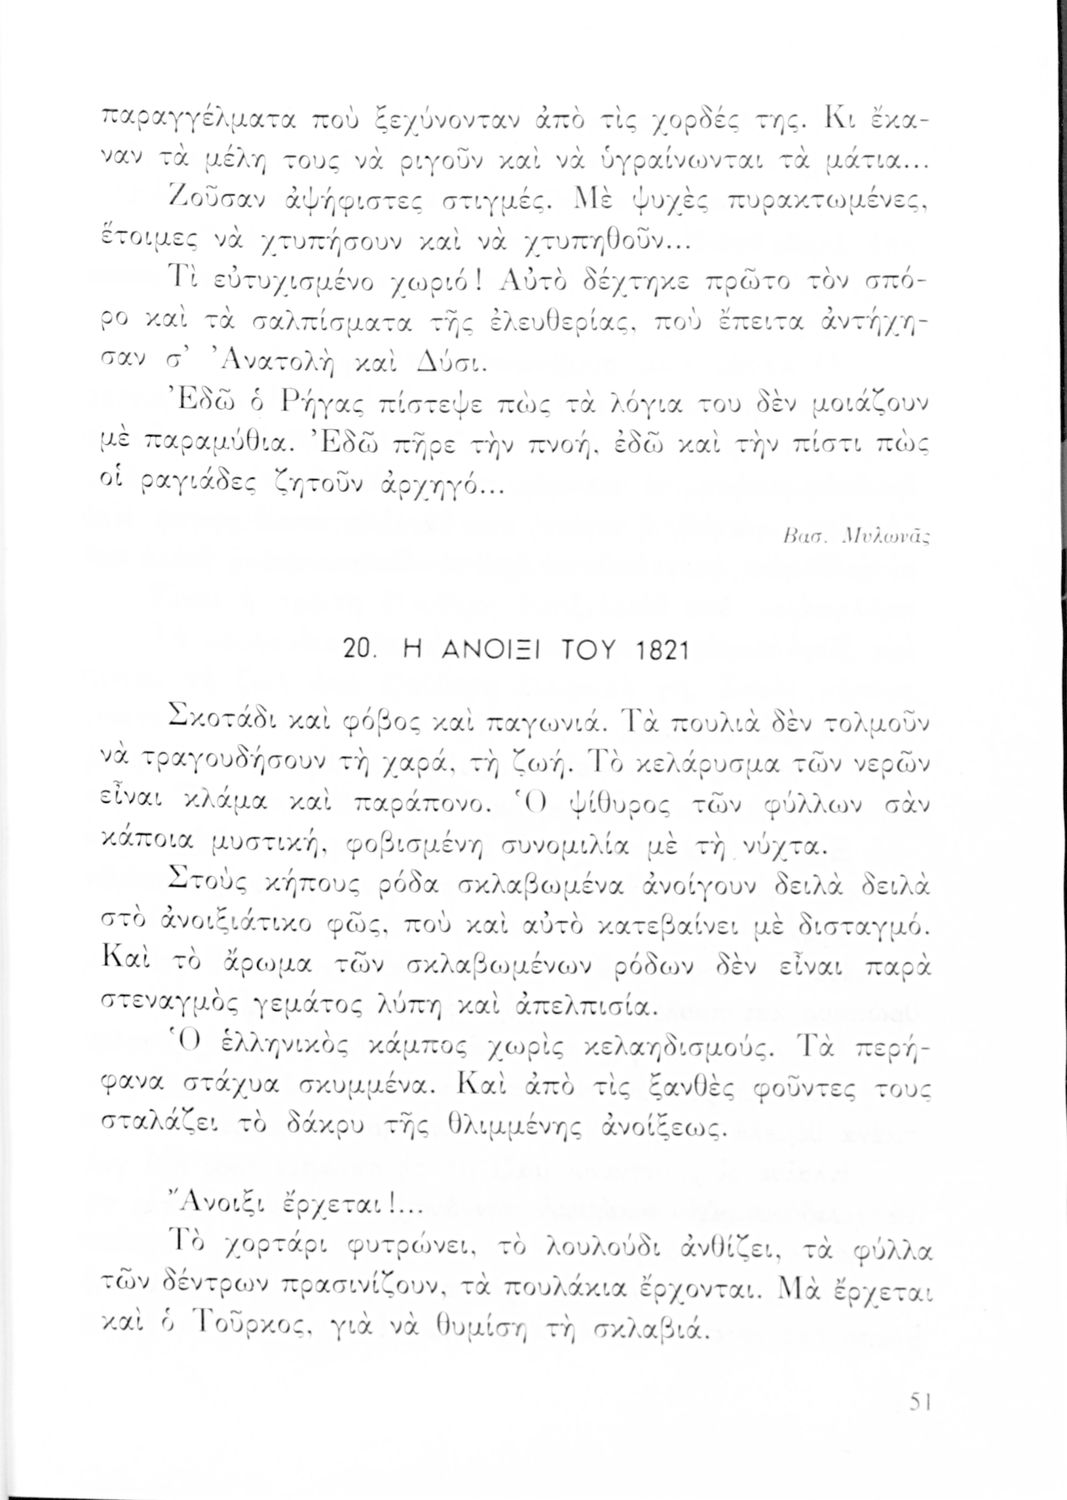 παραγγέλματα ποὺ ξεχύνονταν ἀπὸ τὶς χορδές της. Κι ἔκα-
ναν τὰ μέλη τους νὰ ριγοῦν καὶ νὰ ὑγραίνωνται τὰ μάτια...
Ζοῦσαν ἀψήφιστες στιγμές. Μὲ ψυχὲς πυρακτωμένες,
ἕτοιμες νὰ χτυπήσουν καὶ νὰ χτυπηθοῦν...
Τὶ εὐτυχισμένο χωριό! Αὐτὸ δέχτηκε πρῶτο τὸν σπό-
ρο καὶ τὰ σαλπίσματα τῆς ἐλευθερίας, ποὺ ἔπειτα ἀντήχη-
σαν σ' Ἀνατολὴ καὶ Δύσι.
Ἐδῶ ὁ Ρήγας πίστεψε πὼς τὰ λόγια του δὲν μοιάζουν
μὲ παραμύθια. Ἐδῶ πῆρε τὴν πνοή, ἐδῶ καὶ τὴν πίστι πὼς
οἱ ραγιάδες ζητοῦν ἀρχηγό...
Βασ. Μυλωνᾶς
20. Η ΑΝΟΙΞΙ ΤΟΥ 1821
Σκοτάδι καὶ φόβος καὶ παγωνιά. Τὰ πουλιὰ δὲν τολμοῦν
νὰ τραγουδήσουν τὴ χαρά, τὴ ζωή. Τὸ κελάρυσμα τῶν νερῶν
εἶναι κλάμα καὶ παράπονο. Ὁ ψίθυρος τῶν φύλλων σὰν
κάποια μυστική, φοβισμένη συνομιλία μὲ τὴ νύχτα.
Στοὺς κήπους ρόδα σκλαβωμένα ἀνοίγουν δειλὰ δειλὰ
στὸ ἀνοιξιάτικο φῶς, ποὺ καὶ αὐτὸ κατεβαίνει μὲ δισταγμό.
Καὶ τὸ ἄρωμα τῶν σκλαβωμένων ρόδων δὲν εἶναι παρὰ
στεναγμὸς γεμάτος λύπη καὶ ἀπελπισία.
Ὁ ἑλληνικὸς κάμπος χωρὶς κελαηδισμούς. Τὰ περή-
φανα στάχυα σκυμμένα. Καὶ ἀπὸ τὶς ξανθὲς φοῦντες τους
σταλάζει τὸ δάκρυ τῆς θλιμμένης ἀνοίξεως.
Ἄνοιξι ἔρχεται!...
Τὸ χορτάρι φυτρώνει, τὸ λουλούδι ἀνθίζει, τὰ φύλλα
τῶν δέντρων πρασινίζουν, τὰ πουλάκια ἔρχονται. Μὰ ἔρχεται
καὶ ὁ Τοῦρκος, γιὰ νὰ θυμίση τὴ σκλαβιά.
51